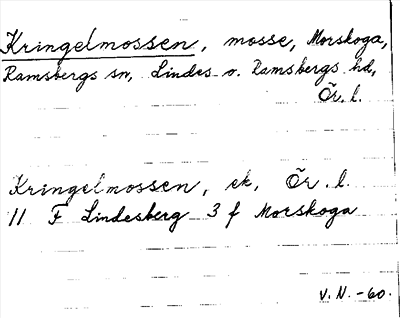 Kringelmossen, mosse, Morskoga,
Ramsbergs sn, Lindes o. Ramsbergs hd,
Ör. l.
Kringelmossen, ek, Ör. l.
11 F Lindesberg 3 f Morskoga
V. N. -60.